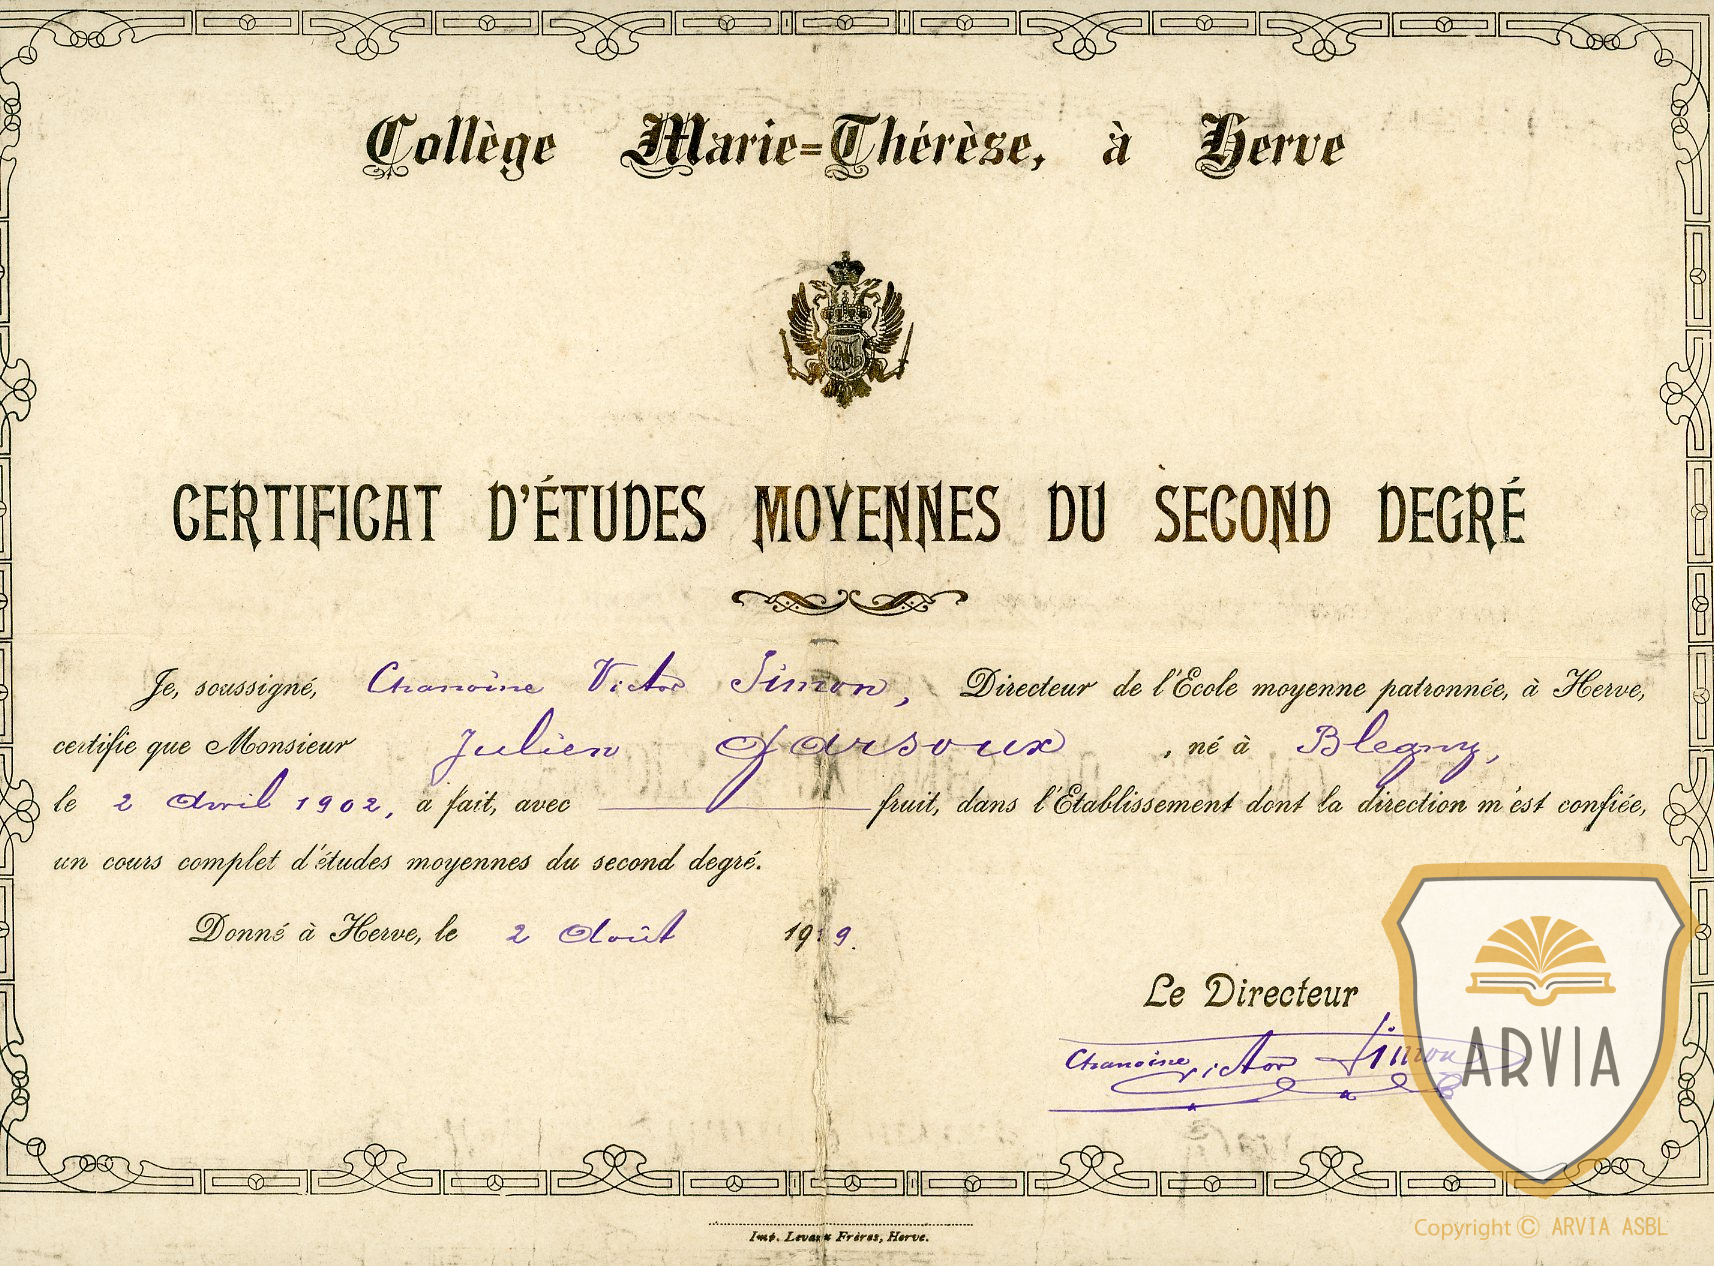 Collège Marie=Thérèse, à Herve
CERTIFICAT D'ÉTUDES MOYENNES DU SECOND DEGRÉ
Je, soussigné, Chanoine Victor Simon, Directeur de l'Ecole moyenne patronnée, à Herve,
certifie que Monsieur Julien Garsoux, né à Blegny,
le 2 Avril 1902, a fait, avec fruit, dans l'Etablissement dont la direction m'est confiée,
un cours complet d'études moyennes du second degré.
Donné à Herve, le 2 Août 1919.
Le Directeur
Chanoine Victor Simon
ARVIA
Copyright © ARVIA ASBL
Imp. Frères, Herve.